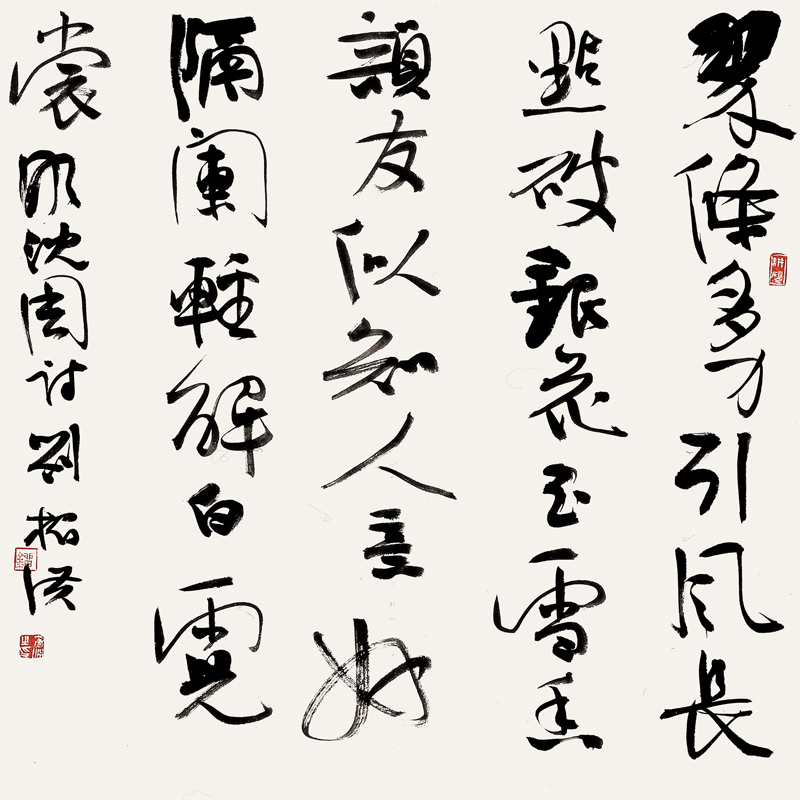 翠條多力引風長
點破銀花玉雪香
韻友似知人意好
隔闌輕解白霓
裳 明沈周詩 劉